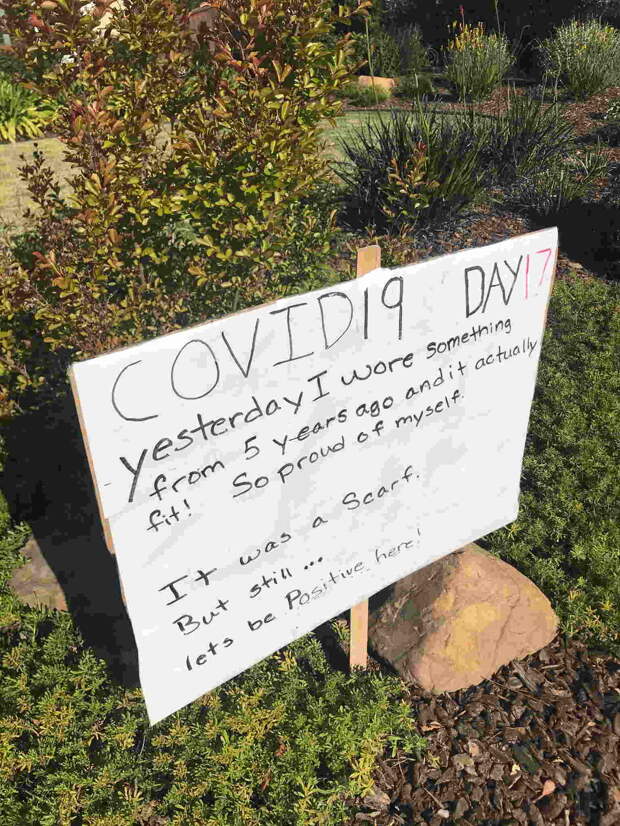 COVID19 DAY17
yesterday I wore something
from 5 years ago and it actually
fit! So proud of myself.
It was a Scarf.
But still...
lets be Positive here!